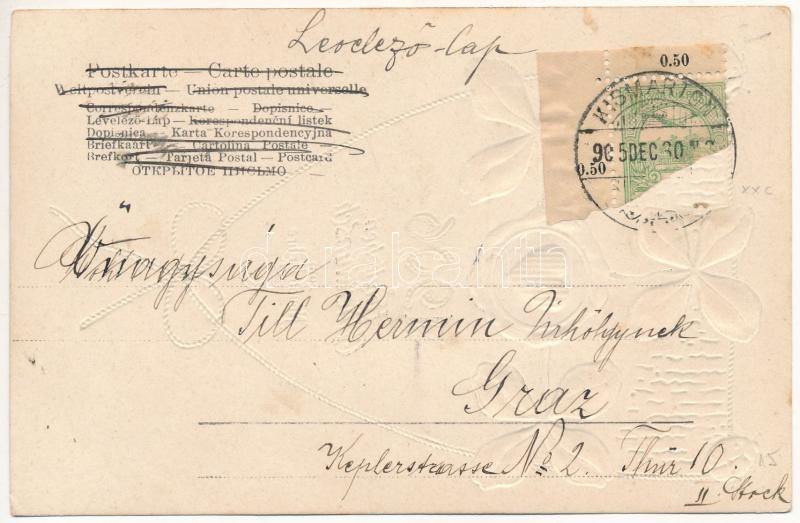 Levelező-lap
0.50
Postkarte – Carte postale
Weltpostverein – Union postale universelle
Correspondenzkarte – Dopisnice
Levelező-Lap – Korespondenční listek
Dopisnica – Karta Korespondencyjna
Briefkaart – Cartolina Postale
Brefkort – Tarjeta Postal – Postcard
ОТКРЫТОЕ ПИСЬМО
KISMARTON
905 DEC 30
0.50
XXC
Őnagysága
Till Hermin Úrhölgynek
Graz
Keplerstrasse No 2. Thür 10.
II. Stock
15
darabanth